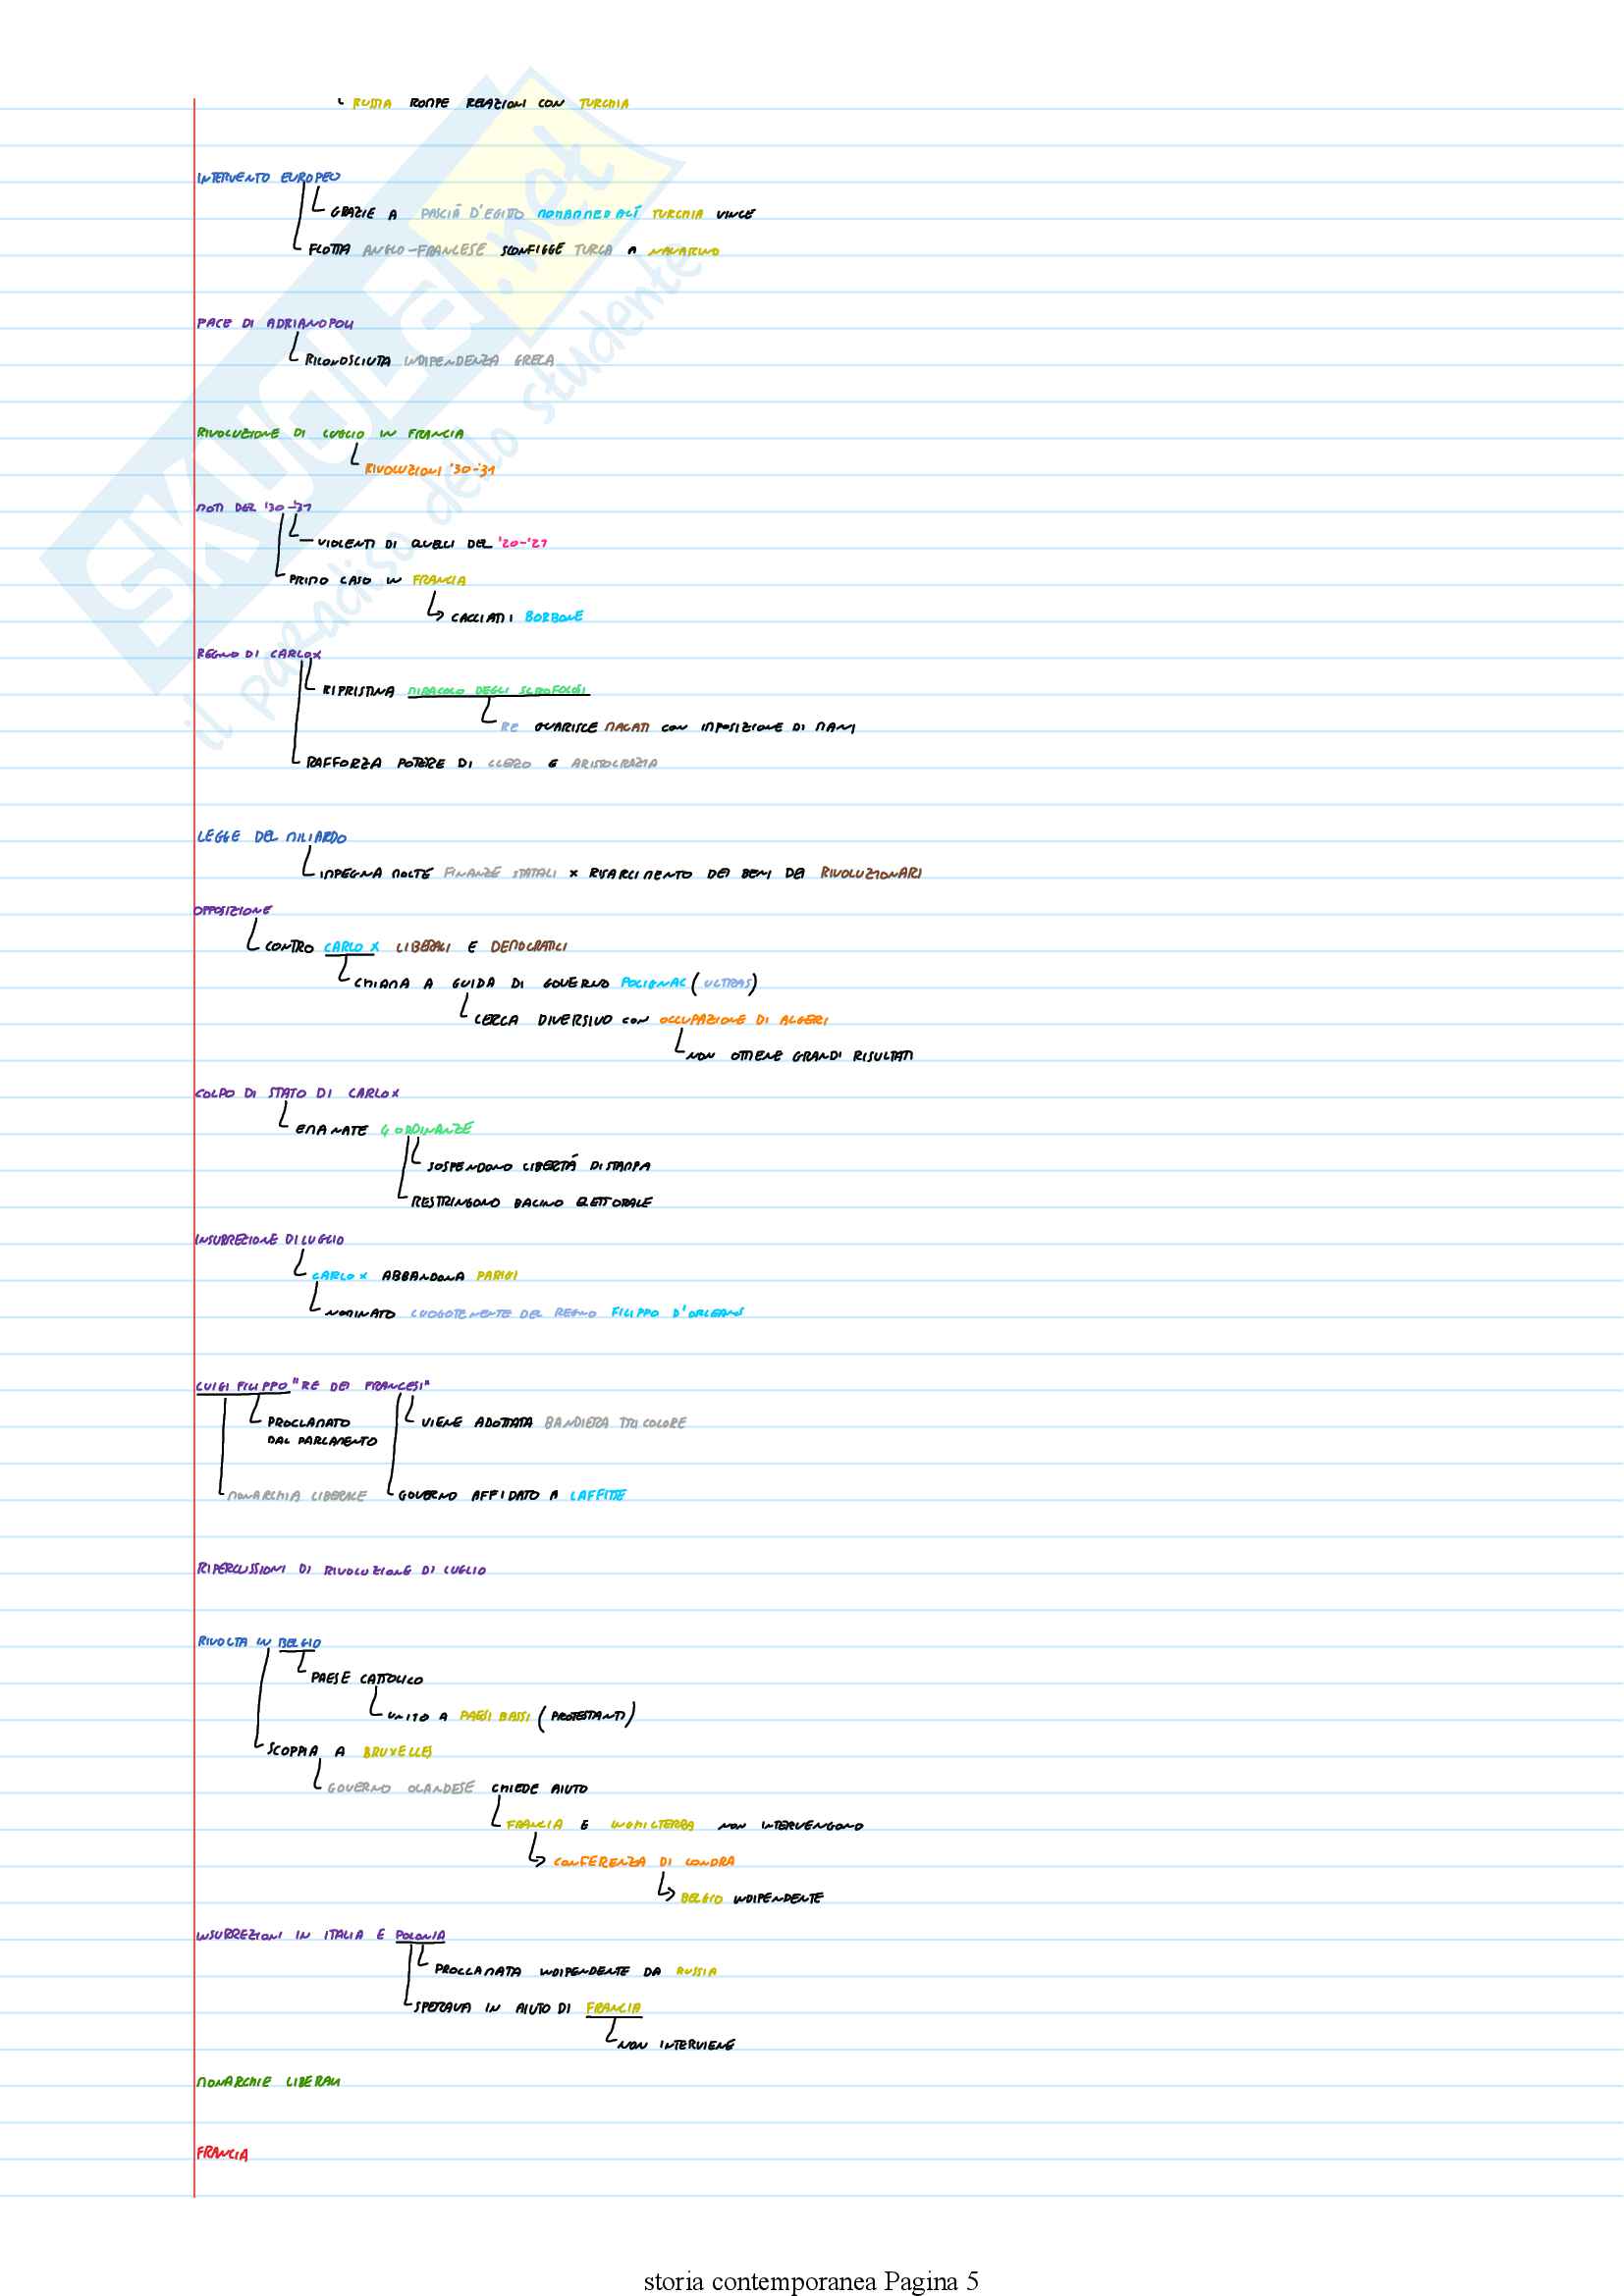 RUSSIA ROMPE RELAZIONI CON TURCHIA
INTERVENTO EUROPEO
GRAZIE A PASCIÀ D'EGITTO MOHAMMED ALÍ TURCHIA VINCE
FLOTTA ANGLO-FRANCESE SCONFIGGE TURCA A NAVARINO
PACE DI ADRIANOPOLI
RICONOSCIUTA INDIPENDENZA GRECA
RIVOLUZIONE DI LUGLIO IN FRANCIA
RIVOLUZIONI '30-'31
MOTI DEL '30-'31
- VIOLENTI DI QUELLI DEL '20-'21
PRIMO CASO IN FRANCIA
CACCIATI BORBONE
REGNO DI CARLO X
RIPRISTINA MIRACOLO DEGLI SCROFOLOSI
RE GUARISCE MALATI CON IMPOSIZIONE DI MANI
RAFFORZA POTERE DI CLERO E ARISTOCRAZIA
LEGGE DEL MILIARDO
IMPEGNA MOLTE FINANZE STATALI x RISARCIMENTO DEI BENI DEI RIVOLUZIONARI
OPPOSIZIONE
CONTRO CARLO X LIBERALI E DEMOCRATICI
CHIAMA A GUIDA DI GOVERNO POLIGNAC (ULTRAS)
CERCA DIVERSIVO CON OCCUPAZIONE DI ALGERI
NON OTTIENE GRANDI RISULTATI
COLPO DI STATO DI CARLO X
EMANATE 4 ORDINANZE
SOSPENDONO LIBERTÁ DI STAMPA
RESTRINGONO BACINO ELETTORALE
INSURREZIONE DI LUGLIO
CARLO X ABBANDONA PARIGI
NOMINATO LUOGOTENENTE DEL REGNO FILIPPO D'ORLEANS
LUIGI FILIPPO "RE DEI FRANCESI"
PROCLAMATO DAL PARLAMENTO
VIENE ADOTTATA BANDIERA TRICOLORE
MONARCHIA LIBERALE
GOVERNO AFFIDATO A LAFFITTE
RIPERCUSSIONI DI RIVOLUZIONE DI LUGLIO
RIVOLTA IN BELGIO
PAESE CATTOLICO
UNITO A PAESI BASSI (PROTESTANTI)
SCOPPIA A BRUXELLES
GOVERNO OLANDESE CHIEDE AIUTO
FRANCIA E INGHILTERRA NON INTERVENGONO
CONFERENZA DI LONDRA
BELGIO INDIPENDENTE
INSURREZIONI IN ITALIA E POLONIA
PROCLAMATA INDIPENDENTE DA RUSSIA
SPERAVA IN AIUTO DI FRANCIA
NON INTERVIENE
MONARCHIE LIBERALI
FRANCIA
storia contemporanea Pagina 5
SKUOLA.net
il paradiso dello studente